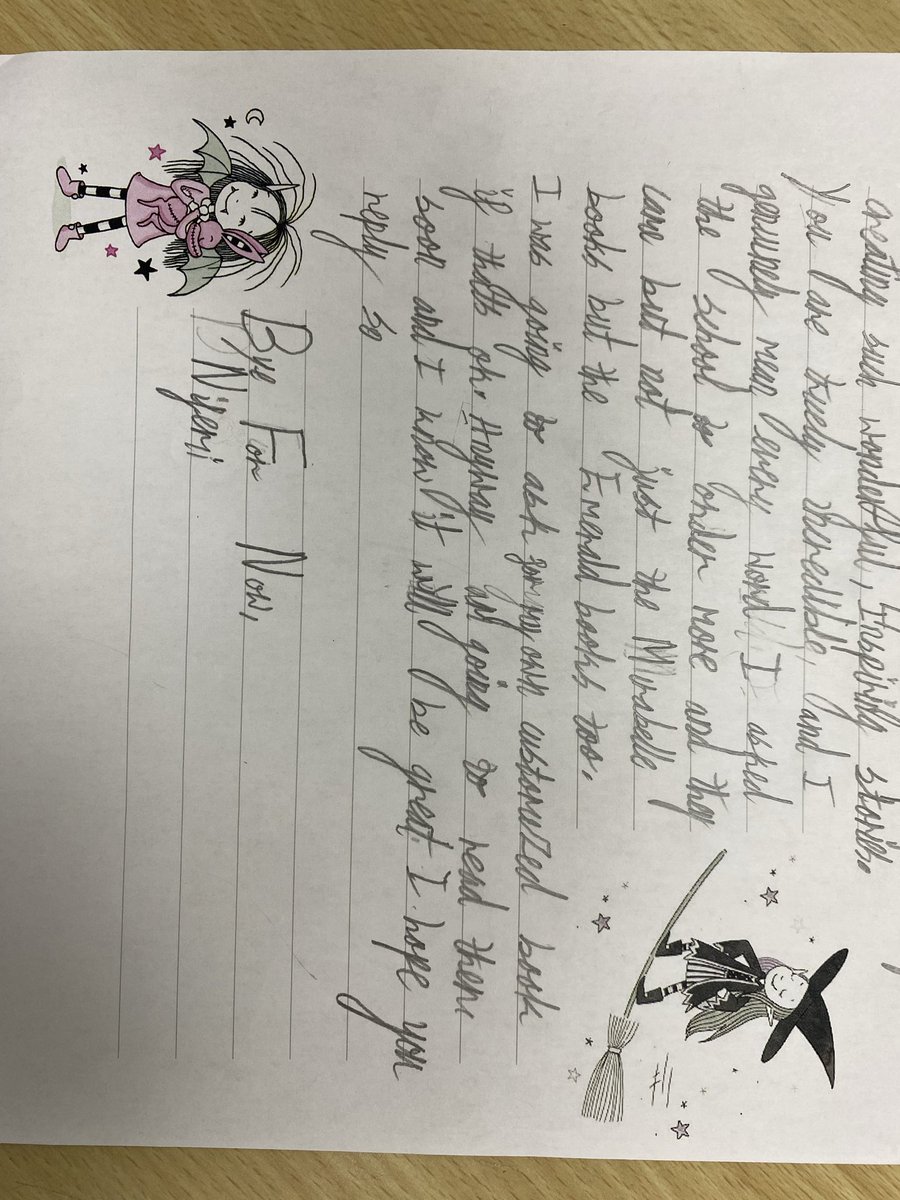 creating such wonderful, Inspiring stories.
You are truely Incredible, and I
genuinely mean every word. I asked
the school to order more and they
came but not just the Mirabelle
books but the Emerald books too.
I was going to ask for my own customized book
if thats ok. Anyway am going to read them
soon and I know it will be great I hope you
reply so
Bye For Now,
Niyemi